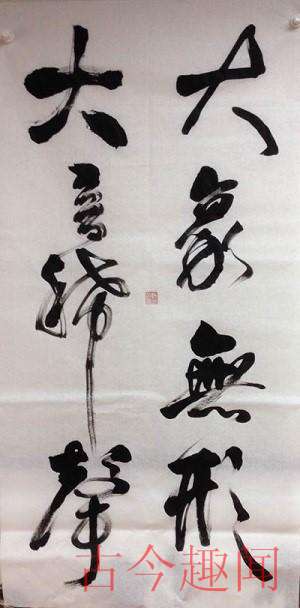 大象無形
大音稀聲
古今趣闻